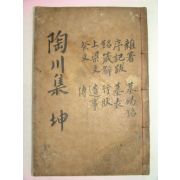 陶川集 坤
雜著 墓碣銘
序記跋 墓表
銘箴辭 行狀
上梁文 遺事
祭文 傳